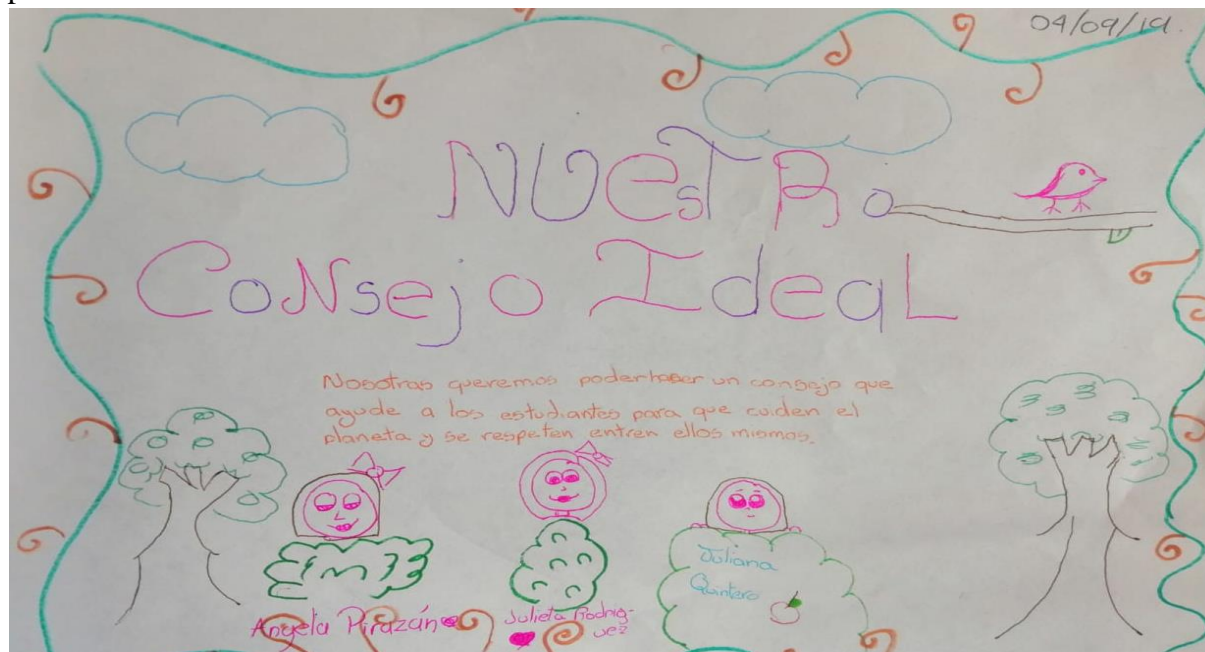 04/09/19.
NUEsTRo
CoNsejo IdeaL
Nosotras queremos poder haser un consejo que
ayude a los estudiantes para que cuiden el
planeta y se respeten entren ellos mismos.
Juliana
Quintero
Angela Pirazán
Julieta Rodrig-
uez